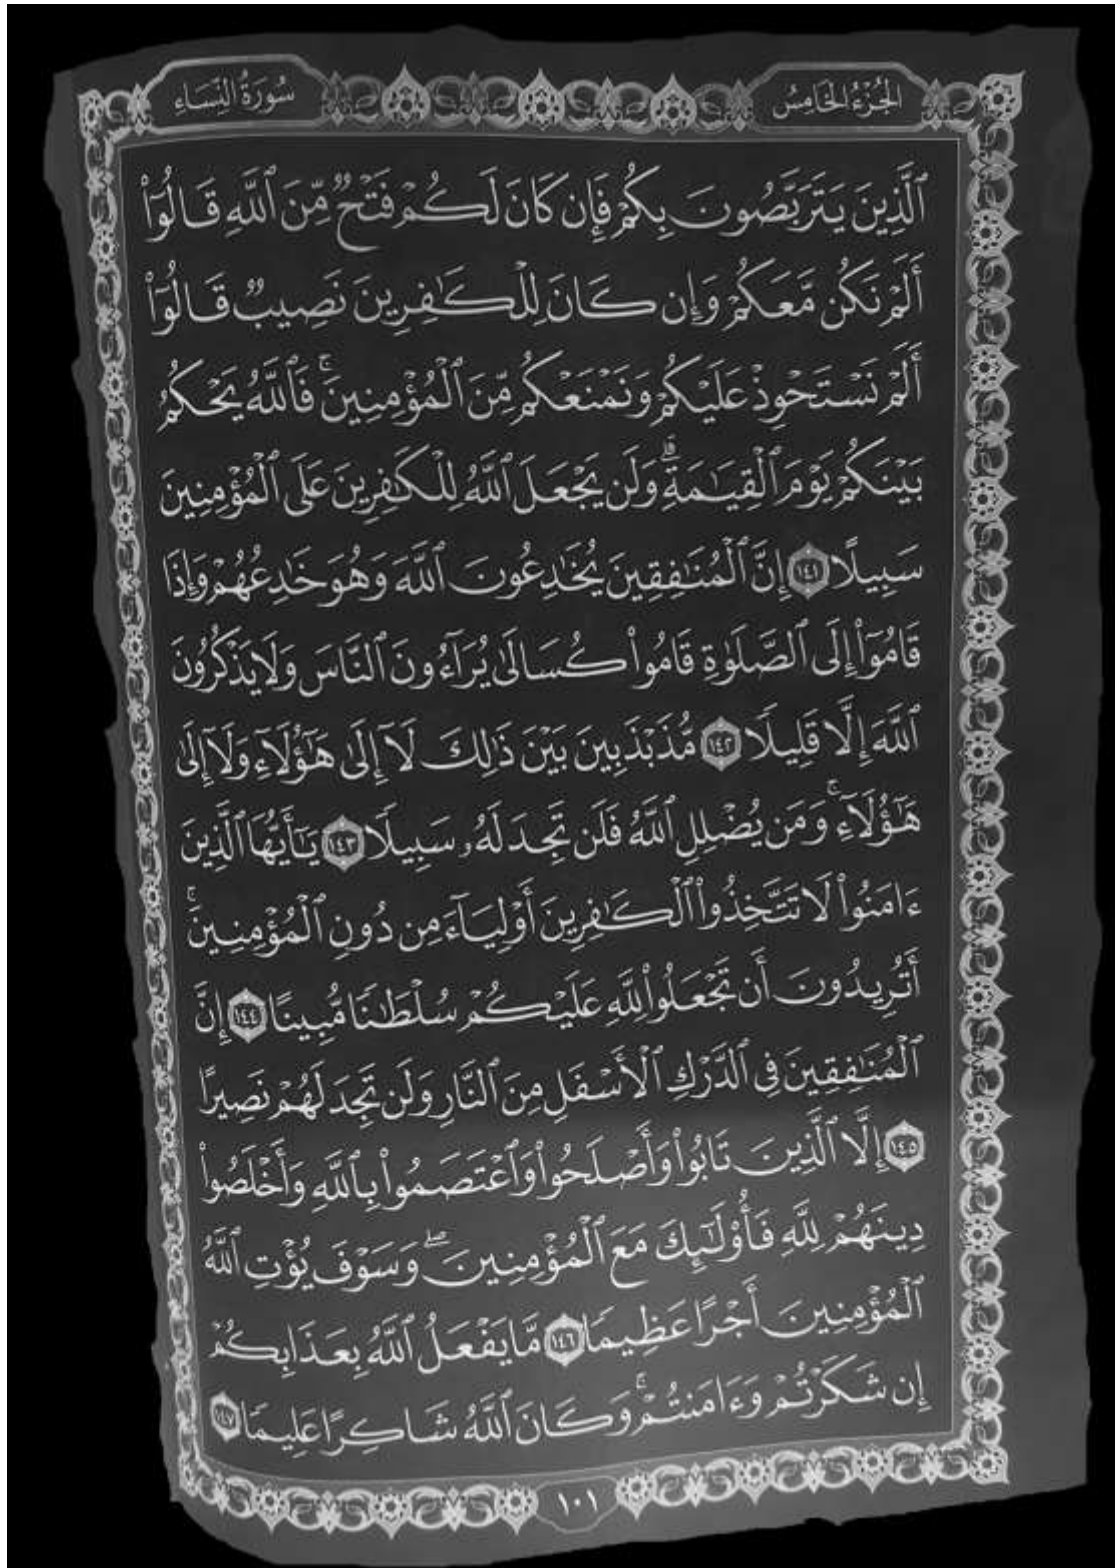 الجُزْءُ الخَامِسُ سُورَةُ النِّسَاءِ
ٱلَّذِينَ يَتَرَبَّصُونَ بِكُمْ فَإِن كَانَ لَكُمْ فَتْحٌ مِّنَ ٱللَّهِ قَالُوٓا۟
أَلَمْ نَكُن مَّعَكُمْ وَإِن كَانَ لِلْكَـٰفِرِينَ نَصِيبٌ قَالُوٓا۟
أَلَمْ نَسْتَحْوِذْ عَلَيْكُمْ وَنَمْنَعْكُم مِّنَ ٱلْمُؤْمِنِينَ ۚ فَٱللَّهُ يَحْكُمُ
بَيْنَكُمْ يَوْمَ ٱلْقِيَـٰمَةِ ۗ وَلَن يَجْعَلَ ٱللَّهُ لِلْكَـٰفِرِينَ عَلَى ٱلْمُؤْمِنِينَ
سَبِيلًا ١٤١ إِنَّ ٱلْمُنَـٰفِقِينَ يُخَـٰدِعُونَ ٱللَّهَ وَهُوَ خَـٰدِعُهُمْ وَإِذَا
قَامُوٓا۟ إِلَى ٱلصَّلَوٰةِ قَامُوا۟ كُسَالَىٰ يُرَآءُونَ ٱلنَّاسَ وَلَا يَذْكُرُونَ
ٱللَّهَ إِلَّا قَلِيلًا ١٤٢ مُّذَبْذَبِينَ بَيْنَ ذَٰلِكَ لَآ إِلَىٰ هَـٰٓؤُلَآءِ وَلَآ إِلَىٰ
هَـٰٓؤُلَآءِ ۚ وَمَن يُضْلِلِ ٱللَّهُ فَلَن تَجِدَ لَهُۥ سَبِيلًا ١٤٣ يَـٰٓأَيُّهَا ٱلَّذِينَ
ءَامَنُوا۟ لَا تَتَّخِذُوا۟ ٱلْكَـٰفِرِينَ أَوْلِيَآءَ مِن دُونِ ٱلْمُؤْمِنِينَ ۚ
أَتُرِيدُونَ أَن تَجْعَلُوا۟ لِلَّهِ عَلَيْكُمْ سُلْطَـٰنًا مُّبِينًا ١٤٤ إِنَّ
ٱلْمُنَـٰفِقِينَ فِى ٱلدَّرْكِ ٱلْأَسْفَلِ مِنَ ٱلنَّارِ وَلَن تَجِدَ لَهُمْ نَصِيرًا
١٤٥ إِلَّا ٱلَّذِينَ تَابُوا۟ وَأَصْلَحُوا۟ وَٱعْتَصَمُوا۟ بِٱللَّهِ وَأَخْلَصُوا۟
دِينَهُمْ لِلَّهِ فَأُو۟لَـٰٓئِكَ مَعَ ٱلْمُؤْمِنِينَ ۖ وَسَوْفَ يُؤْتِ ٱللَّهُ
ٱلْمُؤْمِنِينَ أَجْرًا عَظِيمًا ١٤٦ مَّا يَفْعَلُ ٱللَّهُ بِعَذَابِكُمْ
إِن شَكَرْتُمْ وَءَامَنتُمْ ۚ وَكَانَ ٱللَّهُ شَاكِرًا عَلِيمًا ١٤٧
١٠١